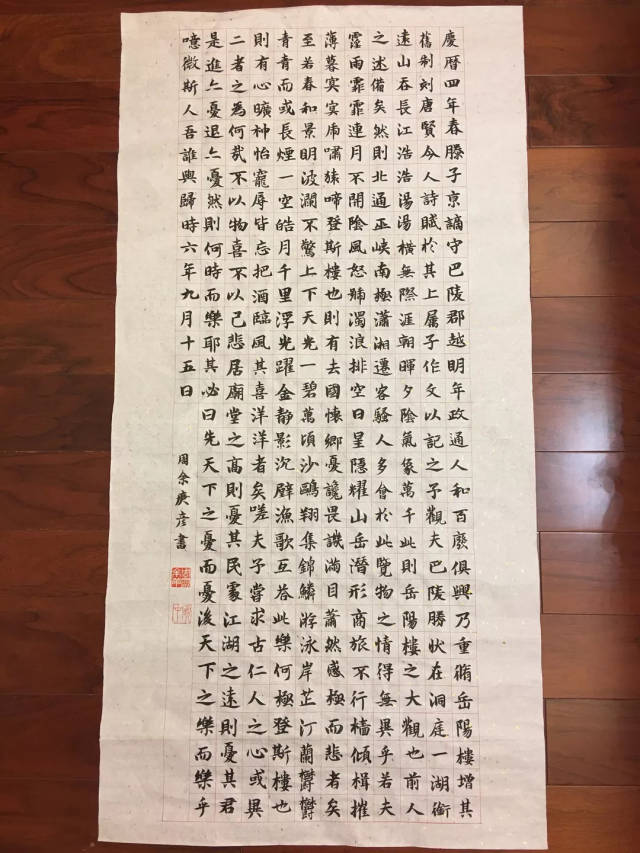 慶曆四年春滕子京謫守巴陵郡越明年政通人和百廢俱興乃重脩岳陽樓增其
舊制刻唐賢今人詩賦於其上屬予作文以記之予觀夫巴陵勝狀在洞庭一湖銜
遠山吞長江浩浩湯湯橫無際涯朝暉夕陰氣象萬千此則岳陽樓之大觀也前人
之述備矣然則北通巫峽南極瀟湘遷客騷人多會於此覽物之情得無異乎若夫
霪雨霏霏連月不開陰風怒號濁浪排空日星隱耀山岳潛形商旅不行檣傾楫摧
薄暮冥冥虎嘯猿啼登斯樓也則有去國懷鄉憂讒畏譏滿目蕭然感極而悲者矣
至若春和景明波瀾不驚上下天光一碧萬頃沙鷗翔集錦鱗游泳岸芷汀蘭鬱鬱
青青而或長煙一空皓月千里浮光躍金靜影沉璧漁歌互答此樂何極登斯樓也
則有心曠神怡寵辱皆忘把酒臨風其喜洋洋者矣嗟夫予嘗求古仁人之心或異
二者之為何哉不以物喜不以己悲居廟堂之高則憂其民處江湖之遠則憂其君
是進亦憂退亦憂然則何時而樂耶其必曰先天下之憂而憂後天下之樂而樂乎
噫微斯人吾誰與歸時六年九月十五日
周余庚彥書